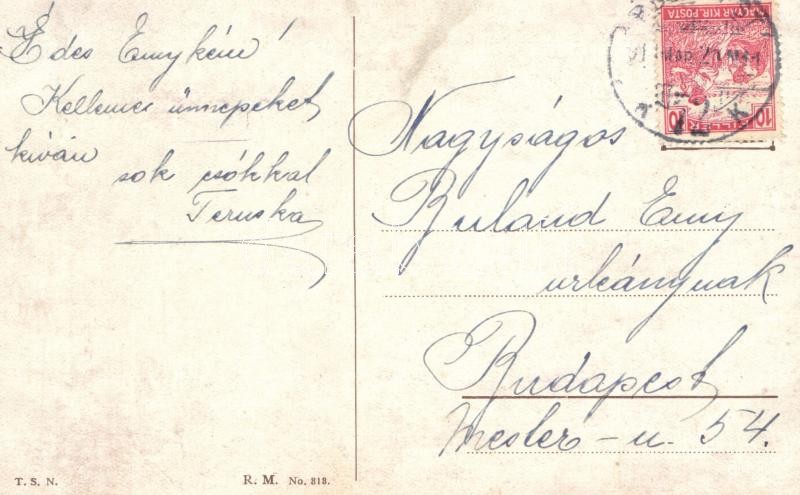 Édes Emykém!
Kellemes ünnepeket
kíván
sok csókkal
Teruska
MAGYAR KIR. POSTA
10 FILLÉR 10
Nagyságos
Ruland Emy
urleánynak
Budapest
Mester-u. 54.
T. S. N.
R. M. No. 313.